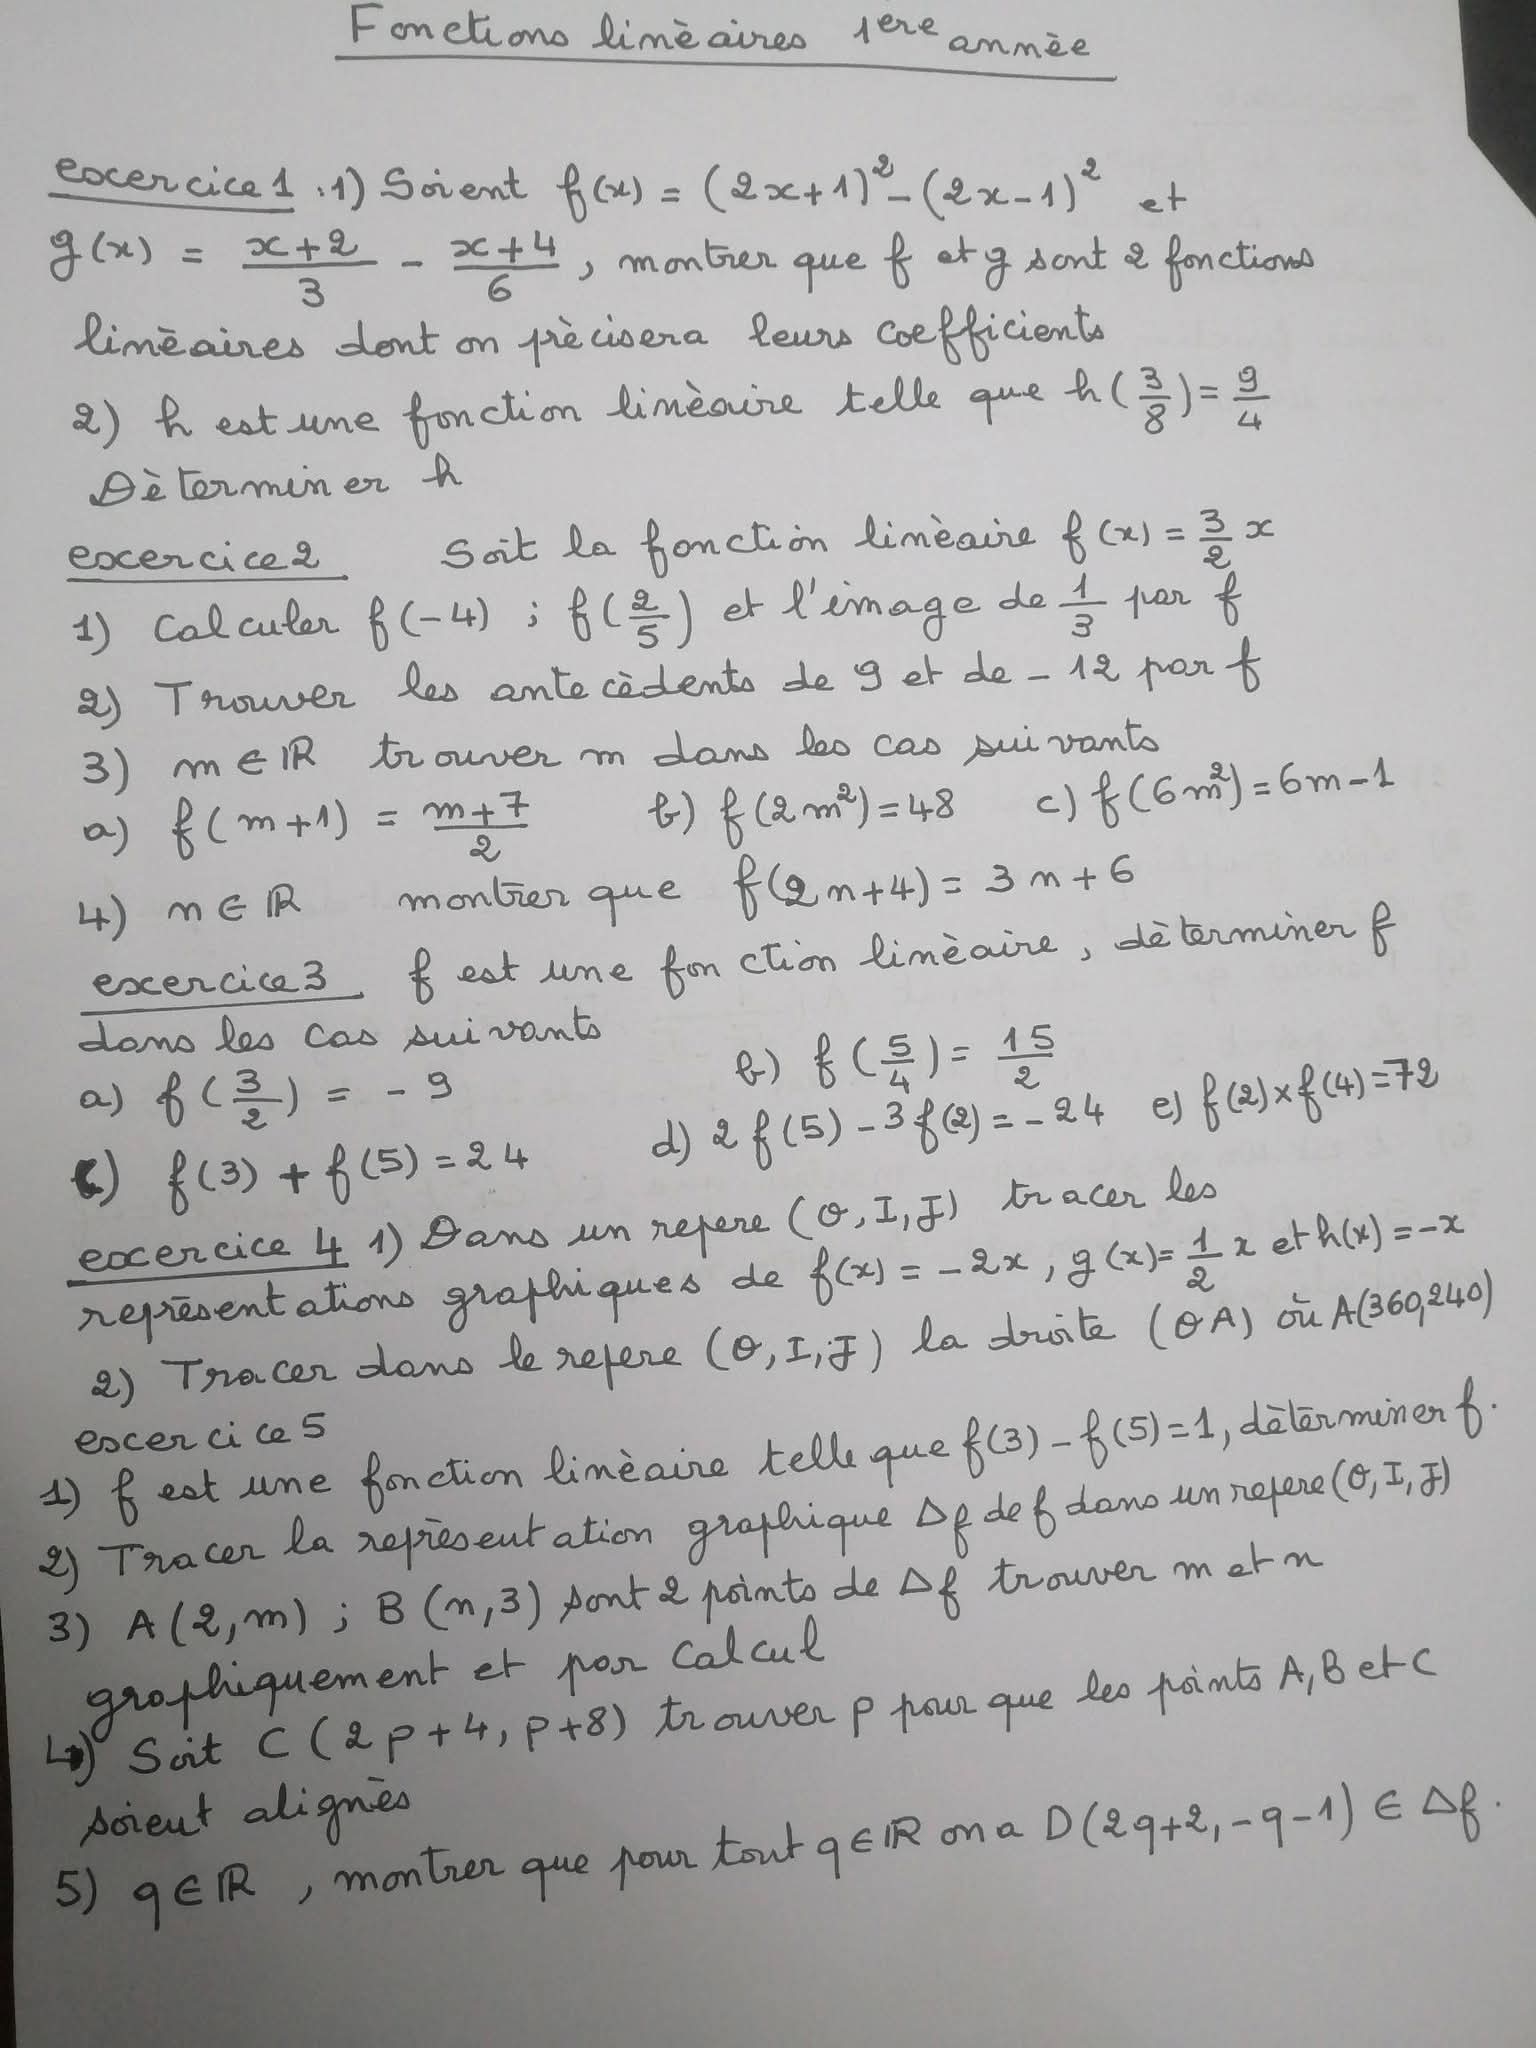 Fonctions linèaires 1ere annèe
excercice1 . 1) Soient f(x) = (2x+1)² - (2x-1)² et
g(x) = (x+2)/3 - (x+4)/6 , montrer que f et g sont 2 fonctions
linèaires dont on prècisera leurs coefficients
2) h est une fonction linèaire telle que h(3/8) = 9/4
Dèterminer h
excercice2 Soit la fonction linèaire f(x) = 3/2 x
1) Calculer f(-4) ; f(2/5) et l'image de 1/3 par f
2) Trouver les antecèdents de 9 et de -12 par f
3) m ∈ ℝ trouver m dans les cas suivants
a) f(m+1) = (m+7)/2 b) f(2m²) = 48 c) f(6m²) = 6m-1
4) n ∈ ℝ montrer que f(2n+4) = 3n+6
excercice3 f est une fonction linèaire, dèterminer f
dans les cas suivants
a) f(3/2) = -9 b) f(5/4) = 15/2
c) f(3) + f(5) = 24 d) 2f(5) - 3f(2) = -24 e) f(2)×f(4) = 72
excercice 4 1) Dans un repere (O, I, J) tracer les
reprèsentations graphiques de f(x) = -2x, g(x) = 1/2 x et h(x) = -x
2) Tracer dans le repere (O, I, J) la droite (OA) où A(360,240)
excercice5
1) f est une fonction linèaire telle que f(3) - f(5) = 1, dèterminer f.
2) Tracer la reprèsentation graphique Δf de f dans un repere (O, I, J)
3) A(2, m) ; B(n, 3) sont 2 points de Δf trouver m et n
graphiquement et par calcul
4) Soit C(2p+4, p+8) trouver p pour que les points A, B et C
soient alignès
5) q ∈ ℝ , montrer que pour tout q ∈ ℝ on a D(2q+2, -q-1) ∈ Δf.